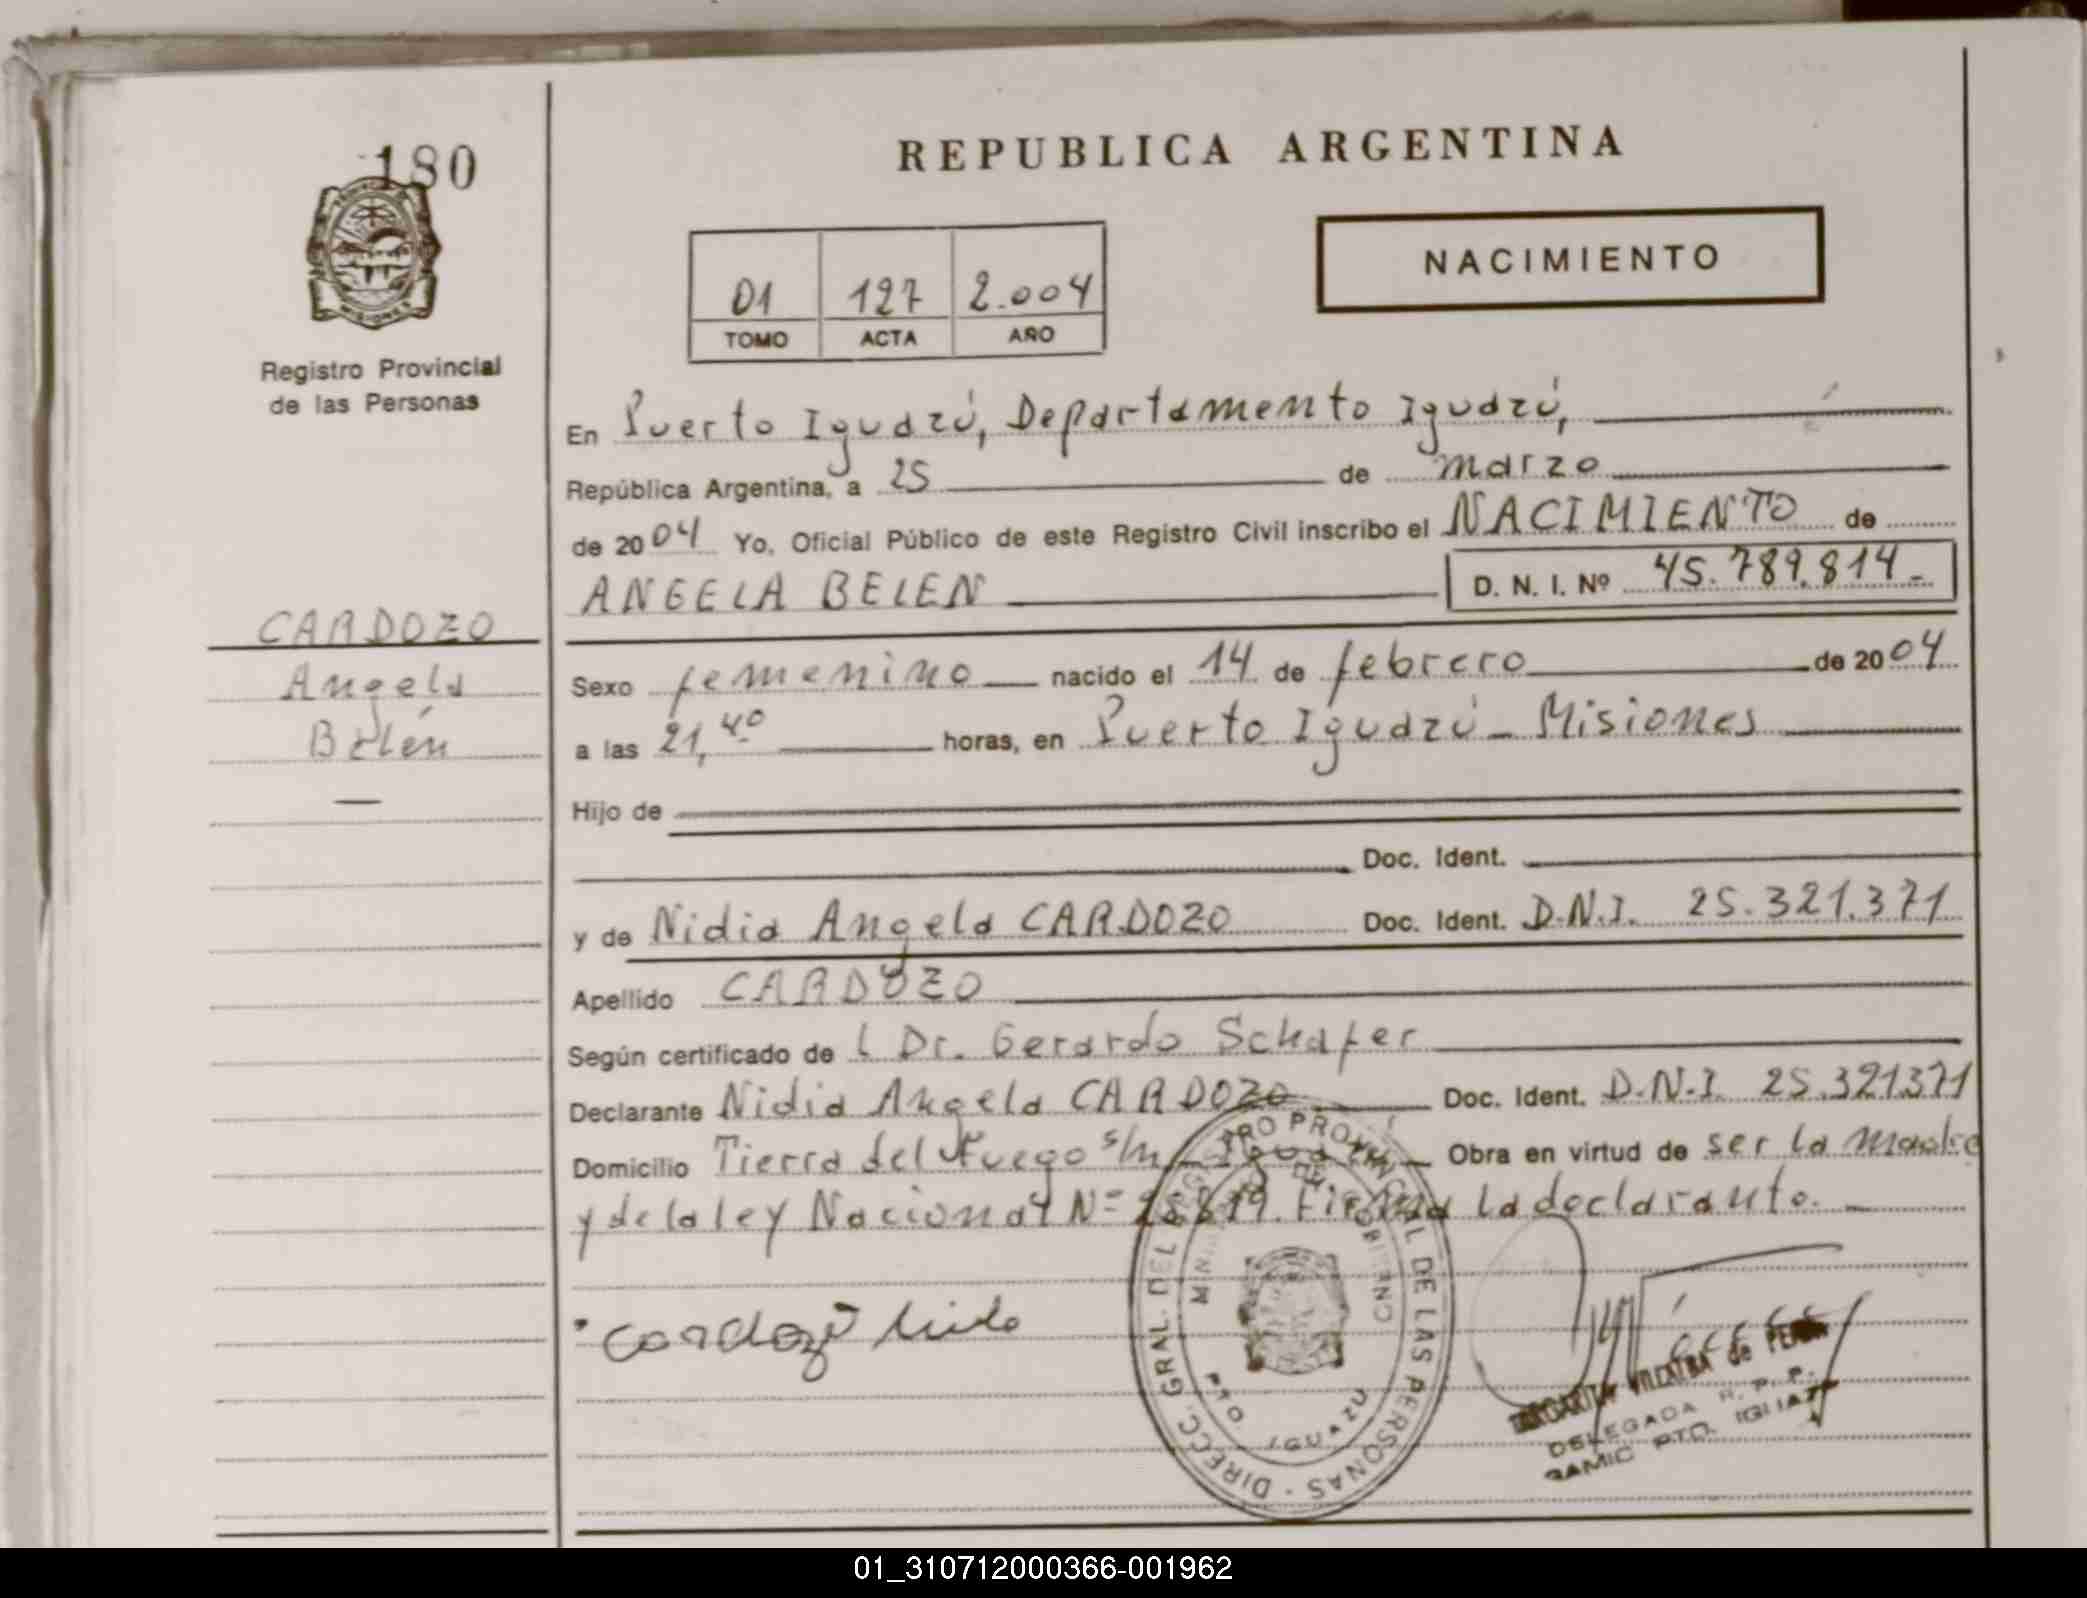 180
REPUBLICA ARGENTINA
NACIMIENTO
01 127 2.004
TOMO ACTA AÑO
Registro Provincial
de las Personas
En Puerto Iguazú, Departamento Iguazú,
República Argentina, a 25 de marzo
de 2004 Yo, Oficial Público de este Registro Civil inscribo el NACIMIENTO de
ANGELA BELEN D. N. I. Nº 45.789.814-
CARDOZO
Angela
Belén
Sexo femenino nacido el 14 de febrero de 2004
a las 21,40 horas, en Puerto Iguazú - Misiones
Hijo de
Doc. Ident.
y de Nidia Angela CARDOZO Doc. Ident. D.N.I. 25.321.371
Apellido CARDOZO
Según certificado de l Dr. Gerardo Schafer
Declarante Nidia Angela CARDOZO Doc. Ident. D.N.I. 25.321371
Domicilio Tierra del Fuego s/n - Iguazú Obra en virtud de ser la madre
y de la ley Nacional Nº Firma la declarante.
Cardozo Nida
DIRECC. GRAL. DEL REGISTRO PROVINCIAL DE LAS PERSONAS
PTO. IGUAZU
MARGARITA de
DELEGADA R. P. P.
PTO.
01_310712000366-001962